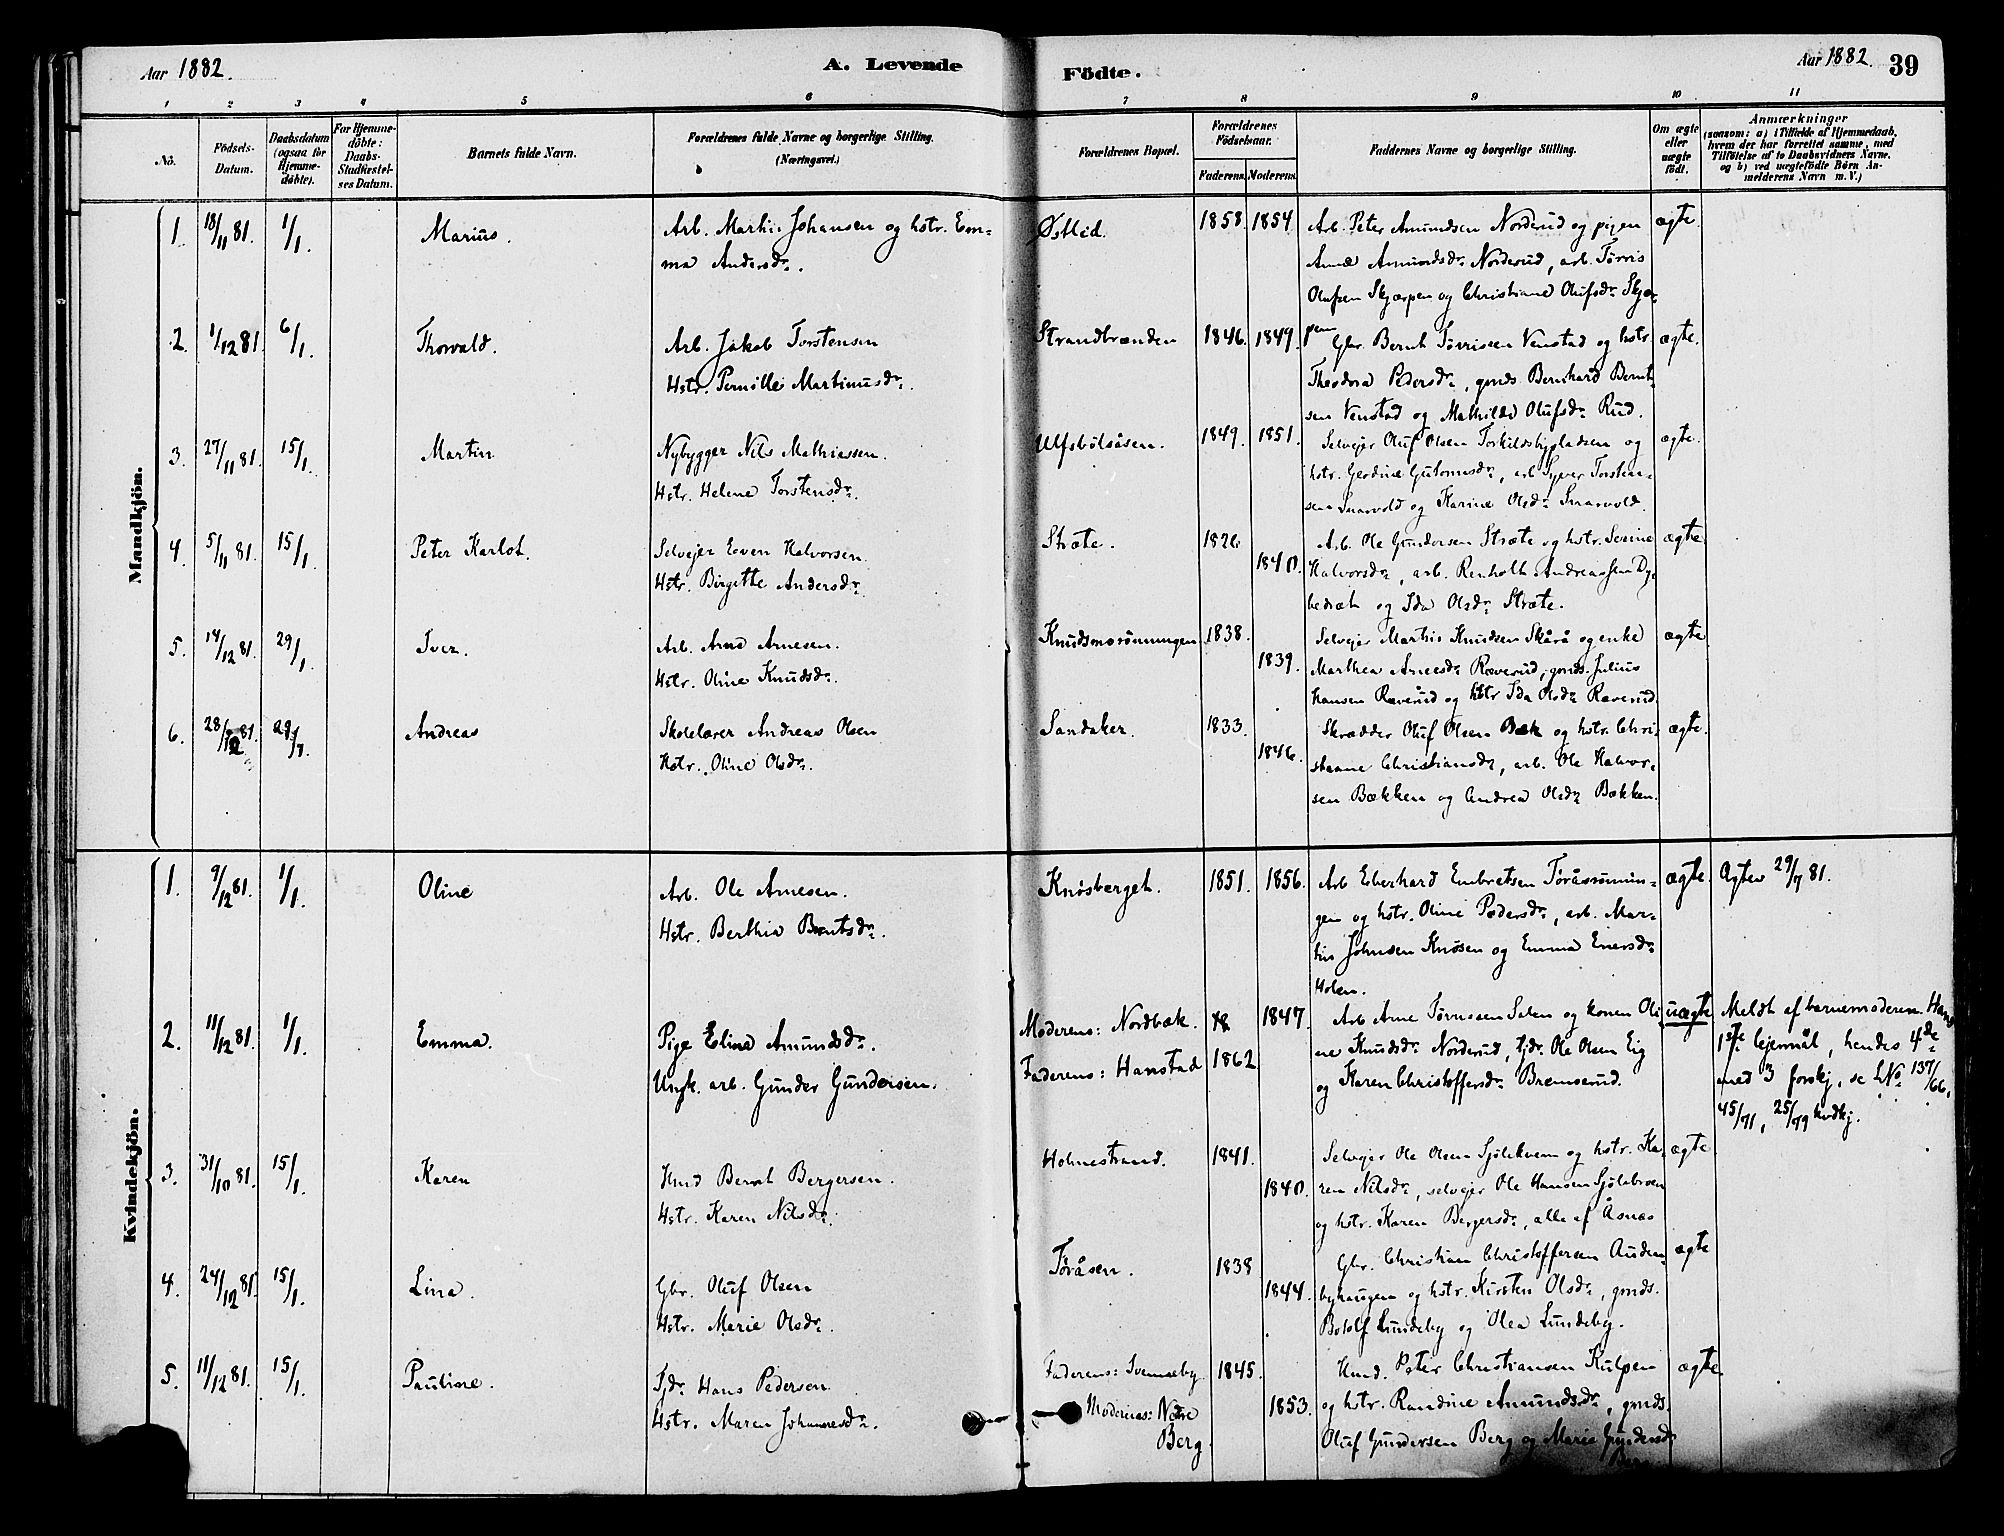 Aar 1882.
A. Levende Födte.
Aar 1882. 39
1 2 3 4 5 6 7 8 9 10 11
No.
Födsels-Datum.
Daabsdatum (ogsaa for Hjemme-döbte).
For Hjemme-döbte: Daabs-Stadfæstel-ses Datum.
Barnets fulde Navn.
Forældrenes fulde Navne og borgerlige Stilling. (Næringsvei.)
Forældrenes Bopæl.
Forældrenes Födselsaar.
Faderens. Moderens.
Faddernes Navne og borgerlige Stilling.
Om ægte eller uægte födt.
Anmærkninger
(saasom: a) i Tilfælde af Hjemmedaab, hvem der har forrettet samme, med Tilföielse af to Daabsvidners Navne, og b) ved uægtefödte Börn An-melderens Navn m. V.)
Mandkjön.
1. 18/11 81. 1/1. Marius. Arb. Martin Johansen og hstr. Em- Østlid. 1858. 1854 Arb. Peter Amundsen Norderud og pigen ægte.
ma Andersdr. Anne Amundsdr. Norderud, arb. Torris
Olufsen Skjærpen og Christiane Olufsdr. Skjær-
2. 1/12 81. 6/1. Thorvald. Arb. Jakob Torstensen Strandbrænden 1846. 1849. pen Gbr. Bernt Torrisen Venstad og hstr. ægte.
Hstr. Pernille Martinusdr. Theodora Pedersdr., gmds. Bernhard Bernt-
sen Venstad og Mathilde Olufsdr. Rud.
3. 27/11 81. 15/1. Martin Nybygger Nils Mathiassen. Ulfsbølsåsen. 1849. 1851. Selvejer Oluf Olsen Torkildsbypladsen og ægte.
Hstr. Helene Torstensdr. hstr. Gerdine Gutormsdr., arb. Syver Torsten-
sen Snarvold og Karine Olsdr. Snarvold.
4. 5/11 81. 15/1. Peter Karlot. Selvejer Even Halvorsen. Stræte. 1826 Arb. Ole Gundersen Stræte og hstr. Severine ægte
Hstr. Birgitte Andersdr. 1840. Halvorsdr., arb. Renholt Andreassen Dy-
bedræt og Ida Olsdr. Stræte.
5. 14/12 81. 29/1. Iver. Arb. Arne Arnesen. Knudsmorønningen 1838. Selvejer Martin Knudsen Skårå og enke ægte
Hstr. Oline Knudsdr. 1839. Marthea Arnesdr. Ræverud, gmds. Julius
Hansen Ræverud og hstr Ida Olsdr. Ræverud.
6. 28/12 81. 29/1. Andreas Skolelærer Andreas Olsen Sandaker. 1833. Skrædder Oluf Olsen Bæk og hstr. Chri- ægte.
Hstr. Oline Olsdr. 1846. stiane Christiansdr., arb. Ole Halvor-
sen Bækken og Andrea Olsdr. Bækken.
Kvindekjön.
1. 9/12 81. 1/1. Oline Arb. Ole Arnesen. Knøsberget. 1851. 1856. Arb Eberhard Embretsen Toråsrønnin- ægte. Ægtev 29/7 81.
Hstr. Berthia Berntsdr. gen og hstr. Oline Pedersdr., arb. Mar-
tin Johnsen Knøsen og Emma Enersdr.
Holen.
2. 11/12 81. 1/1. Emma. Pige Elina Amundsdr. Moderens: Nordbæk. 18 1847. Arb Arne Tørrissen Solen og konen Oli- uægte Meldt af barnemoderen. Hans
Ungk. arb. Gunder Gundersen. Faderens: Hanstad 1862 ne Knudsdr. Norderud, tjdr. Ole Olsen Eig 1ste lejermål, hendes 4de
og Karen Christoffersdr. Bremserud. med 3 forskj, se LNo 137/66.
45/71, 25/79 kvdkj.
3. 31/10 81. 15/1. Karen Hmd Bernt Bergersen. Holmestrand. 1841. Selvejer Ole Olsen Sjølikvern og hstr. Ka- ægte
Hstr. Karen Nilsdr. 1840. ren Nilsdr., selvejer Ole Hansen Sjølibroen
og hstr. Karen Bergersdr., alle af Åsnæs
4. 24/12 81. 15/1. Lina. Gbr. Oluf Olsen Toråsen. 1838 Gbr. Christian Christoffersen Auden- ægte
Hstr. Marie Olsdr. 1844. byhaugen og hstr. Kirsten Olsdr., gmds.
Botolf Lundeby og Olea Lundeby.
5. 11/12 81. 15/1. Pauline. Tjdr. Hans Pedersen Faderens: Svenneby. 1845. Hmd. Peter Christiansen Kulpen ægte
Hstr. Maren Johannesdr. Moderens: Nedre Berg. 1853. og hstr. Randine Amundsdr., gmds.
Oluf Gundersen Berg og Marie Gundersdr.
Berg.